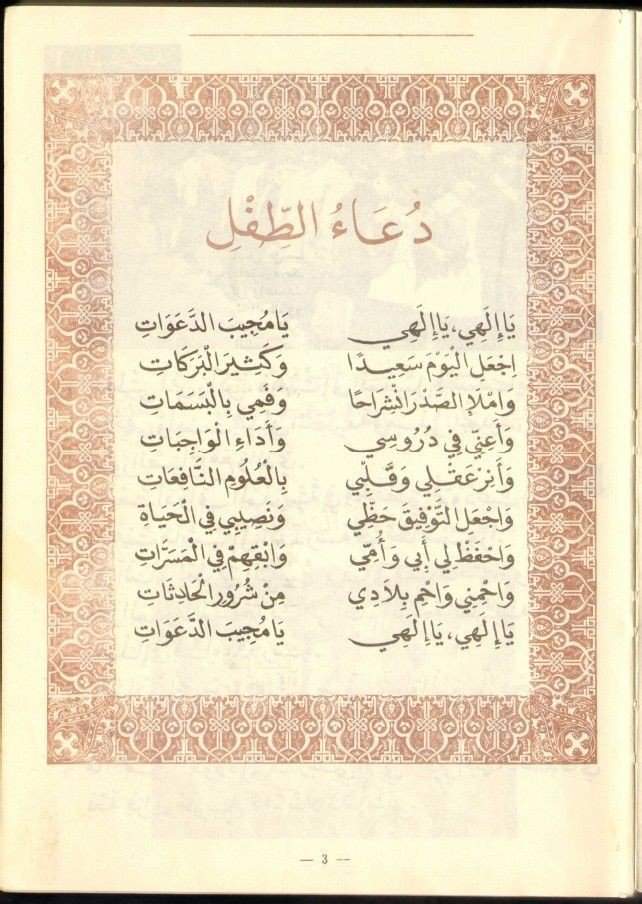 دُعَاءُ الطِّفْلِ
يَا إِلَهِي، يَا إِلَهِي يَا مُجِيبَ الدَّعَوَاتِ
اِجْعَلِ الْيَوْمَ سَعِيدًا وَكَثِيرَ الْبَرَكَاتِ
وَامْلَإِ الصَّدْرَ انْشِرَاحًا وَفَمِي بِالْبَسَمَاتِ
وَأَعِنِّي فِي دُرُوسِي وَأَدَاءِ الْوَاجِبَاتِ
وَأَنِرْ عَقْلِي وَقَلْبِي بِالْعُلُومِ النَّافِعَاتِ
وَاجْعَلِ التَّوْفِيقَ حَظِّي وَنَصِيبِي فِي الْحَيَاةِ
وَاحْفَظْ لِي أَبِي وَأُمِّي وَابْقِهِمْ فِي الْمَسَرَّاتِ
وَاحْمِنِي وَاحْمِ بِلَادِي مِنْ شُرُورِ الْحَادِثَاتِ
يَا إِلَهِي، يَا إِلَهِي يَا مُجِيبَ الدَّعَوَاتِ
— 3 —